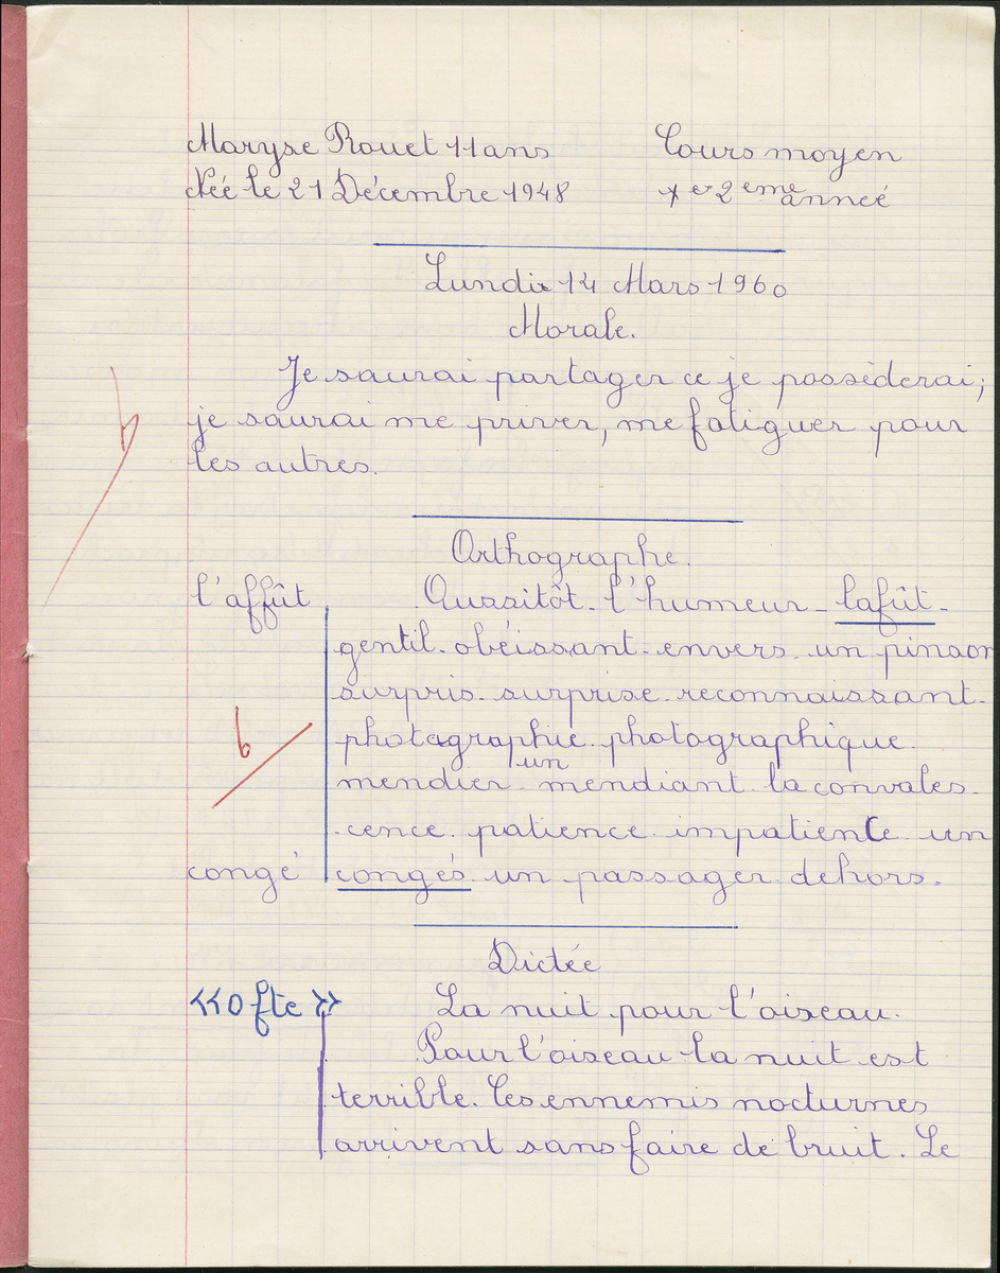 Maryse Rouet 11 ans Cours moyen
Née le 21 Décembre 1948 1 e 2 eme anneé
Lundi 14 Mars 1960
Morale.
Je saurai partager ce je possèderai ;
je saurai me priver, me fatiguer pour
les autres.
Orthographe.
l'affût Aussitôt - l'humeur - lafût -
gentil - obéissant - envers - un pinson
surpris - surprise - reconnaissant -
photographie - photographique -
un
mendier - mendiant - la convales-
-cence - patience - impatience - un
congé congés - un passager - dehors.
Dictée
<<0 fte >> La nuit pour l'oiseau.
Pour l'oiseau la nuit est
terrible. Ces ennemis nocturnes
arrivent sans faire de bruit. Le